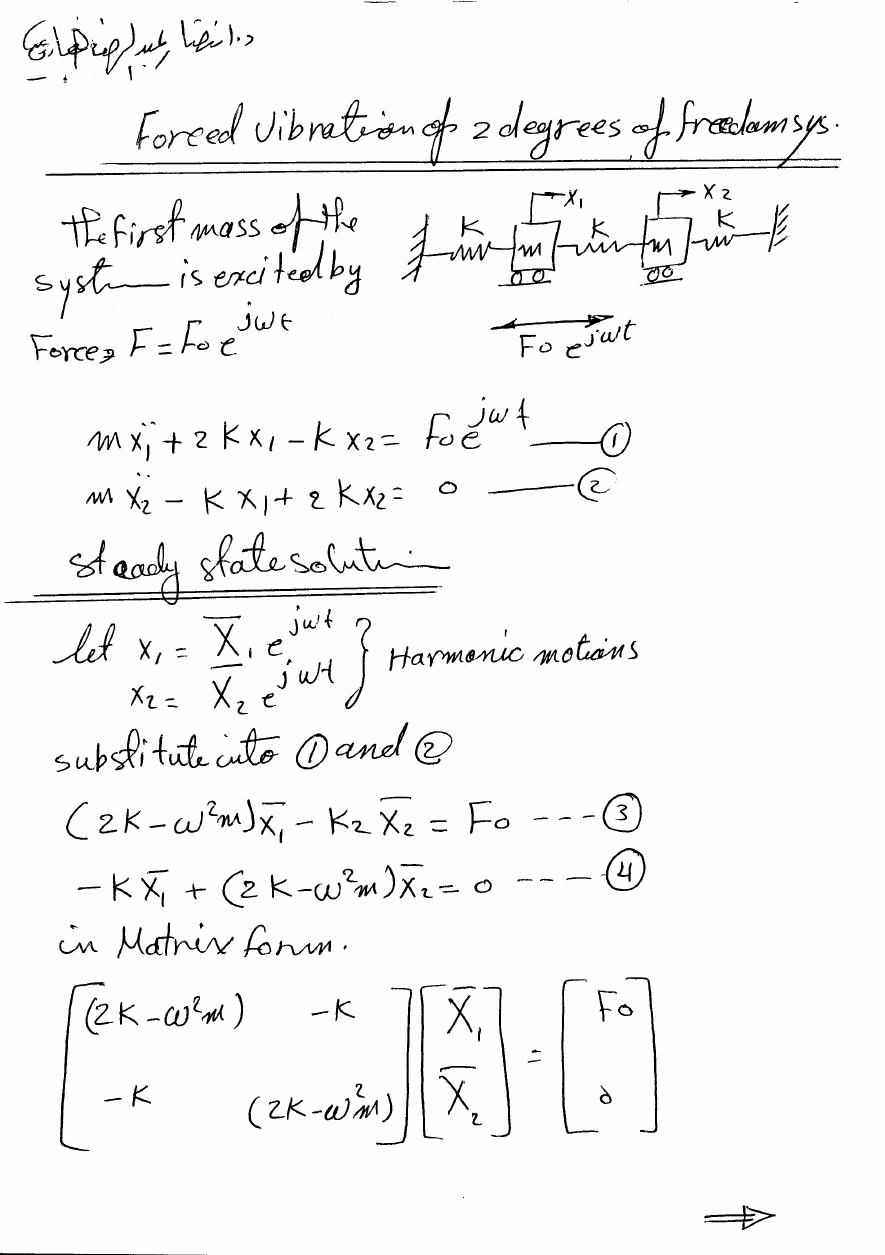 د. انتصار
Forced Vibration of 2 degrees of freedom sys.
The first mass of the
system is excited by
Force, F = Fo e^jwt
K m K m K
x₁ x₂
Fo e^jwt
m ẍ₁ + 2 K x₁ - K x₂ = Fo e^jwt ——— ①
m ẍ₂ - K x₁ + 2 K x₂ = 0 ——— ②
steady state solution
let x₁ = X̅₁ e^jwt } Harmonic motions
x₂ = X̅₂ e^jwt
substitute into ① and ②
(2K - ω²m) X̅₁ - K₂ X̅₂ = Fo --- ③
- K X̅₁ + (2K - ω²m) X̅₂ = 0 ---- ④
in Matrix form.
[(2K - ω²m) -K] [X̅₁] = [Fo]
[-K (2K - ω²m)] [X̅₂] [0]
⇒